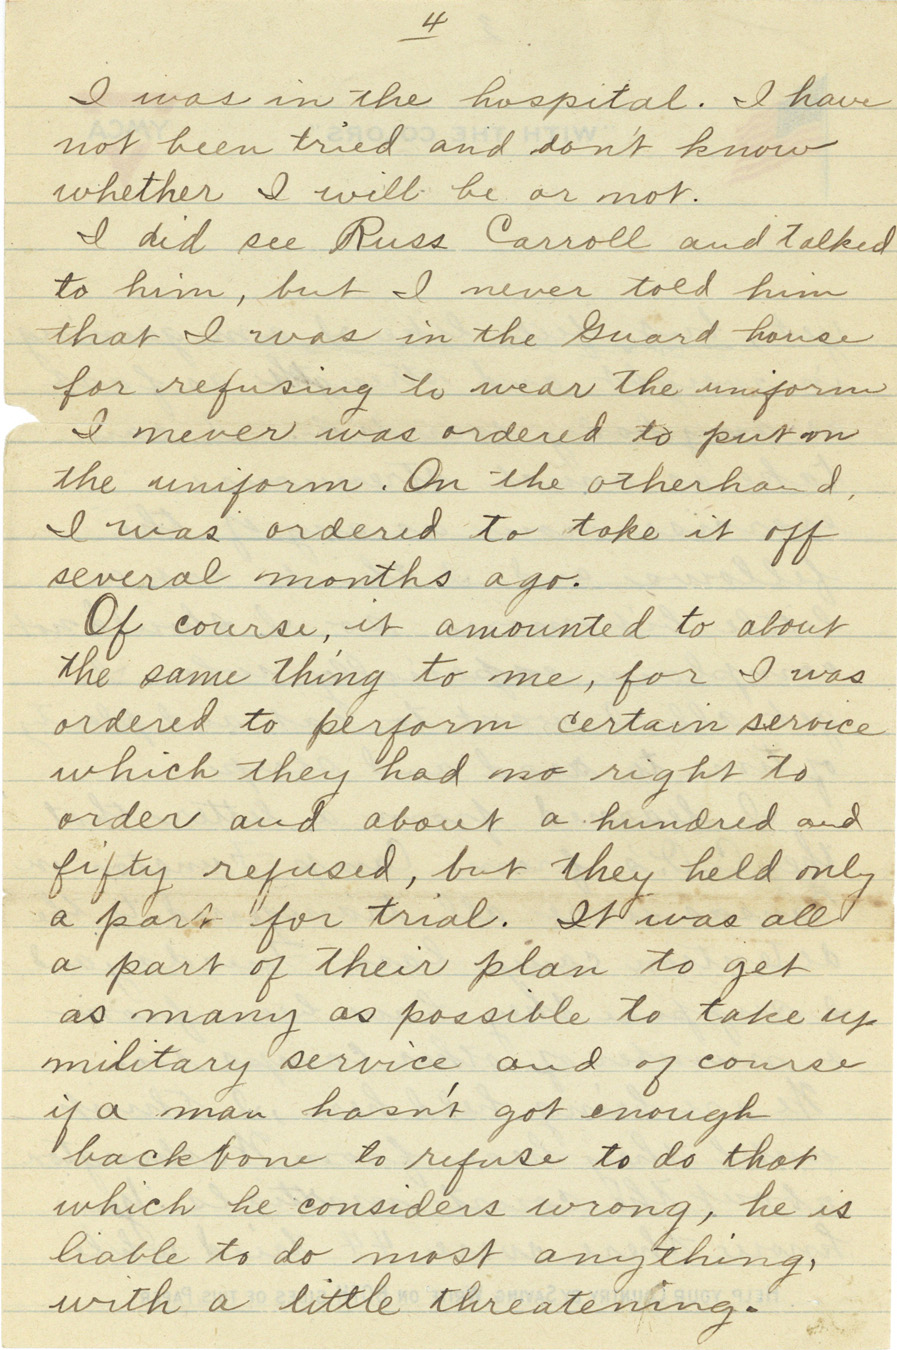 4
I was in the hospital. I have
not been tried and don't know
whether I will be or not.
I did see Russ Carroll and talked
to him, but I never told him
that I was in the Guard house
for refusing to wear the uniform
I never was ordered to put on
the uniform. On the otherhand,
I was ordered to take it off
several months ago.
Of course, it amounted to about
the same thing to me, for I was
ordered to perform certain service
which they had no right to
order and about a hundred and
fifty refused, but they held only
a part for trial. It was all
a part of their plan to get
as many as possible to take up
military service and of course
if a man hasn't got enough
backbone to refuse to do that
which he considers wrong, he is
liable to do most anything,
with a little threatening.